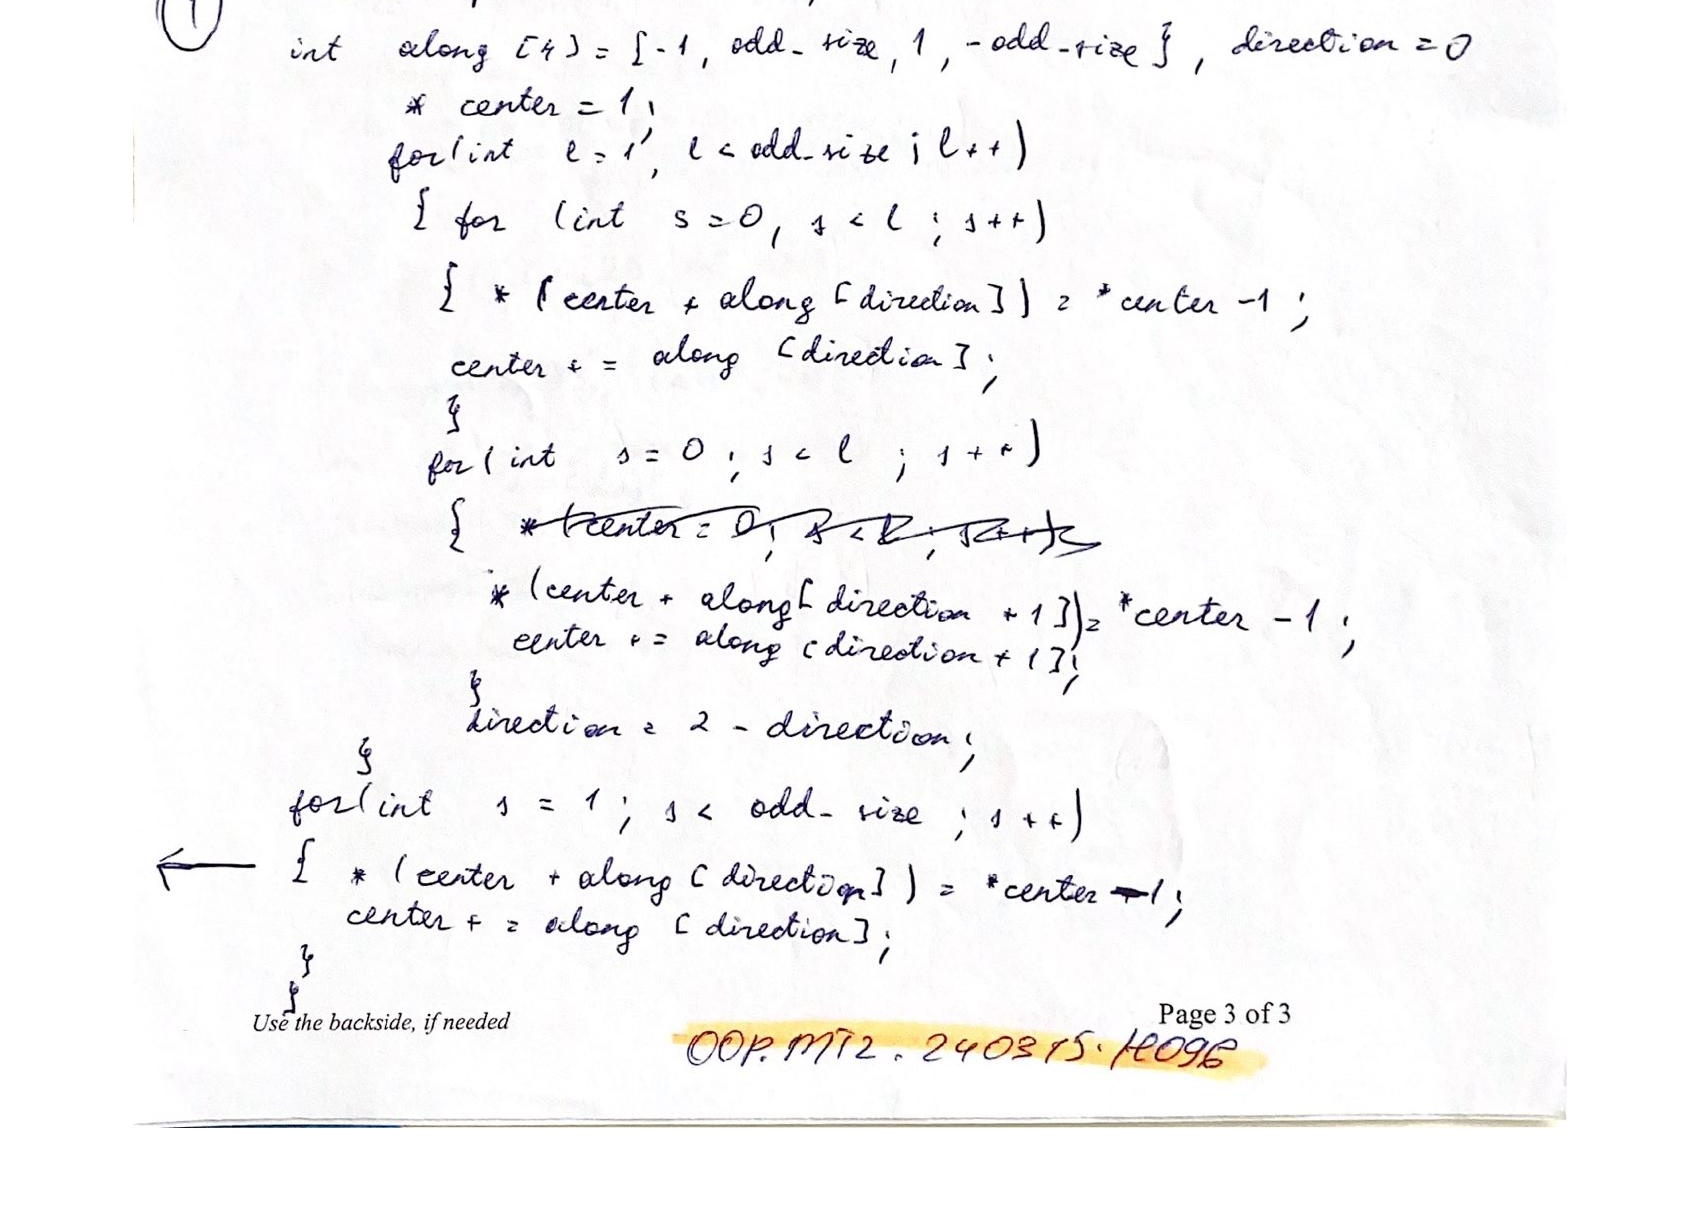 1
int along [4] = {-1, odd_size, 1, -odd_size}, direction = 0
* center = 1;
for(int l = 1, l < odd_size ; l++)
{ for (int s = 0, s < l ; s++)
{ * (center + along [direction]) = *center -1 ;
center += along [direction] ;
}
for (int s = 0 ; s < l ; s++)
{ *(center = 0; s < l ; s++);
* (center + along[direction +1]) = *center - 1 ;
center += along [direction + 1];
}
direction = 2 - direction;
}
for(int s = 1 ; s < odd_size ; s++)
← { * (center + along [direction]) = *center -1;
center += along [direction] ;
}
}
Use the backside, if needed
Page 3 of 3
OOP.MT2.240315.H096